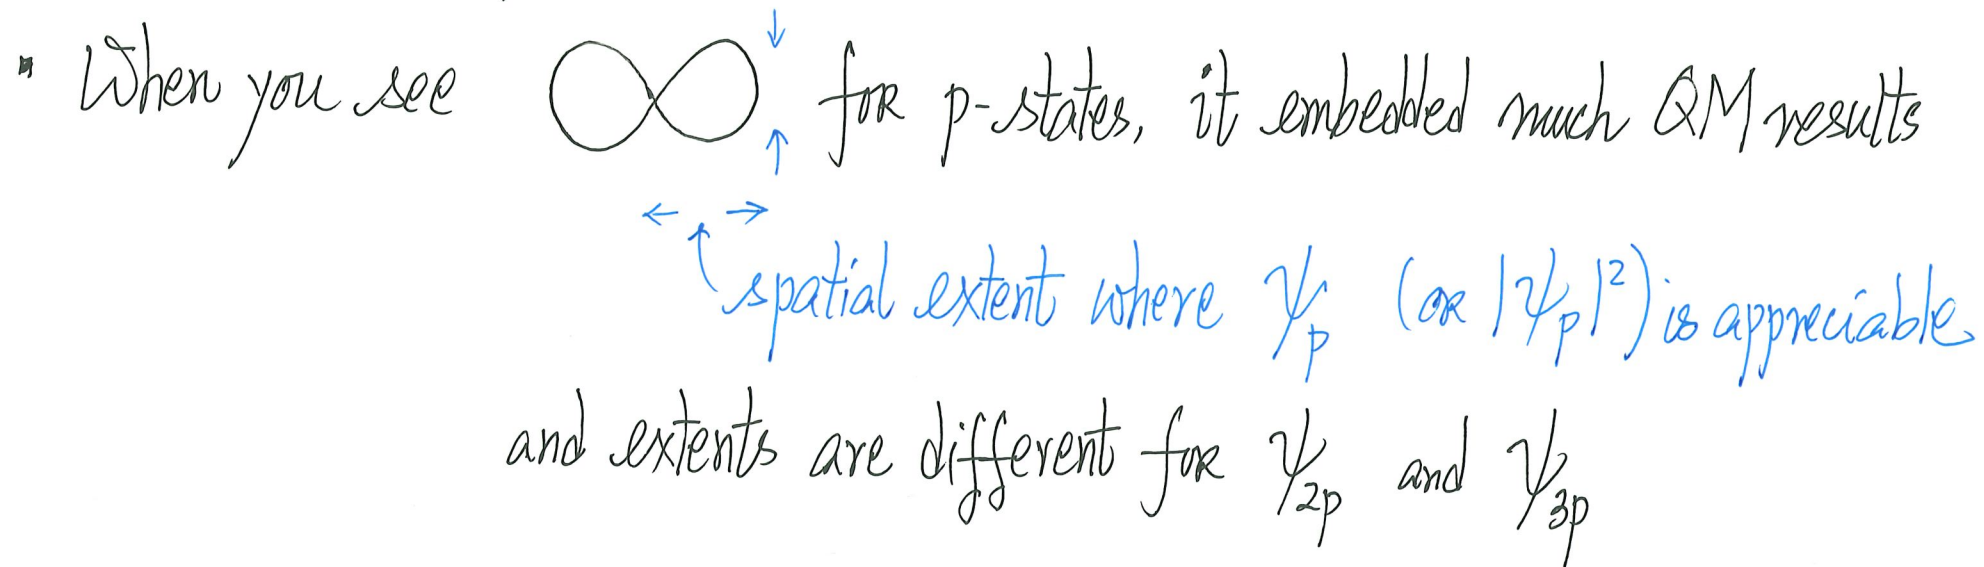 ▪ When you see ∞ for p-states, it embedded much QM results
spatial extent where ψ_p (or |ψ_p|²) is appreciable
and extents are different for ψ_2p and ψ_3p